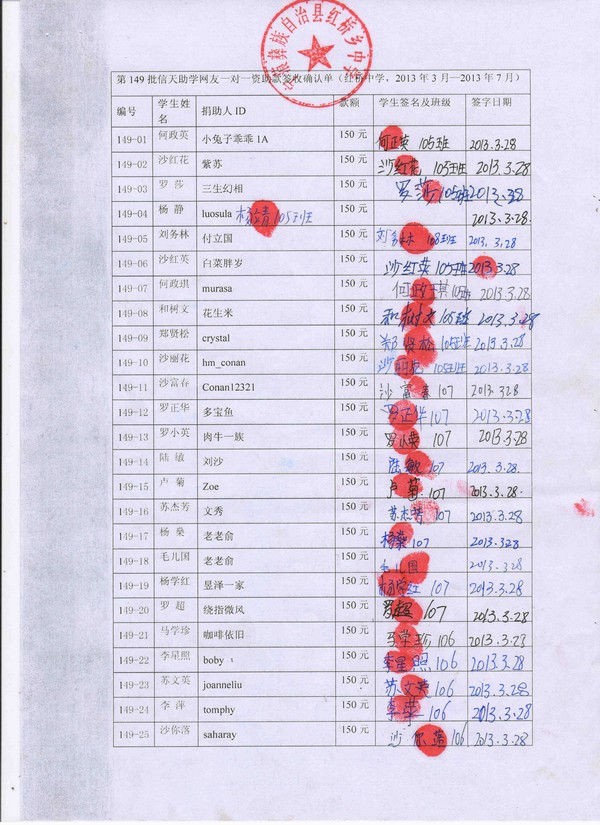 彝族自治县红桥乡中学
第149批信天助学网友一对一资助款签收确认单（红桥中学，2013年3月—2013年7月）
编号 学生姓名 捐助人ID 款额 学生签名及班级 签字日期
149-01 何政英 小兔子乖乖1A 150元 何正英 105班 2013.3.28
149-02 沙红花 紫苏 150元 沙红花 105班 2013.3.28
149-03 罗莎 三生幻相 150元 罗莎 105班 2013.3.28
149-04 杨静 luosula 杨靖 105班 150元 2013.3.28
149-05 刘务林 付立国 150元 刘务林 108班 2013.3.28
149-06 沙红英 白菜胖岁 150元 沙红英 105班 2013.3.28
149-07 何政琪 murasa 150元 何政琪 105班 2013.3.28
149-08 和树文 花生米 150元 和树文 105班 2013.3.28
149-09 郑贤松 crystal 150元 郑贤松 105班 2013.3.28
149-10 沙丽花 hm_conan 150元 沙丽花 105班 2013.3.28
149-11 沙富春 Conan12321 150元 沙富春 107 2013.328
149-12 罗正华 多宝鱼 150元 罗正华 107 2013.3.28
149-13 罗小英 肉牛一族 150元 罗小英 107 2013.3.28
149-14 陆敏 刘沙 150元 陆敏 107 2013.3.28.
149-15 卢菊 Zoe 150元 卢菊 107 2013.3.28.
149-16 苏杰芳 文秀 150元 苏杰芳 107 2013.3.28
149-17 杨燊 老老俞 150元 杨燊 107 2013.328
149-18 毛儿国 老老俞 150元 毛儿国 2013.3.28
149-19 杨学红 昱泽一家 150元 杨学红 107 2013.3.28
149-20 罗超 绕指微风 150元 罗超 107 2013.3.28
149-21 马学珍 咖啡依旧 150元 马学珍 106 2013.3.28
149-22 李星照 boby 150元 李星照 106 2013.3.28
149-23 苏文英 joanneliu 150元 苏文英 106 2013.3.28
149-24 李萍 tomphy 150元 李苹 106 2013.3.28
149-25 沙你落 saharay 150元 沙你落 106 2013.3.28